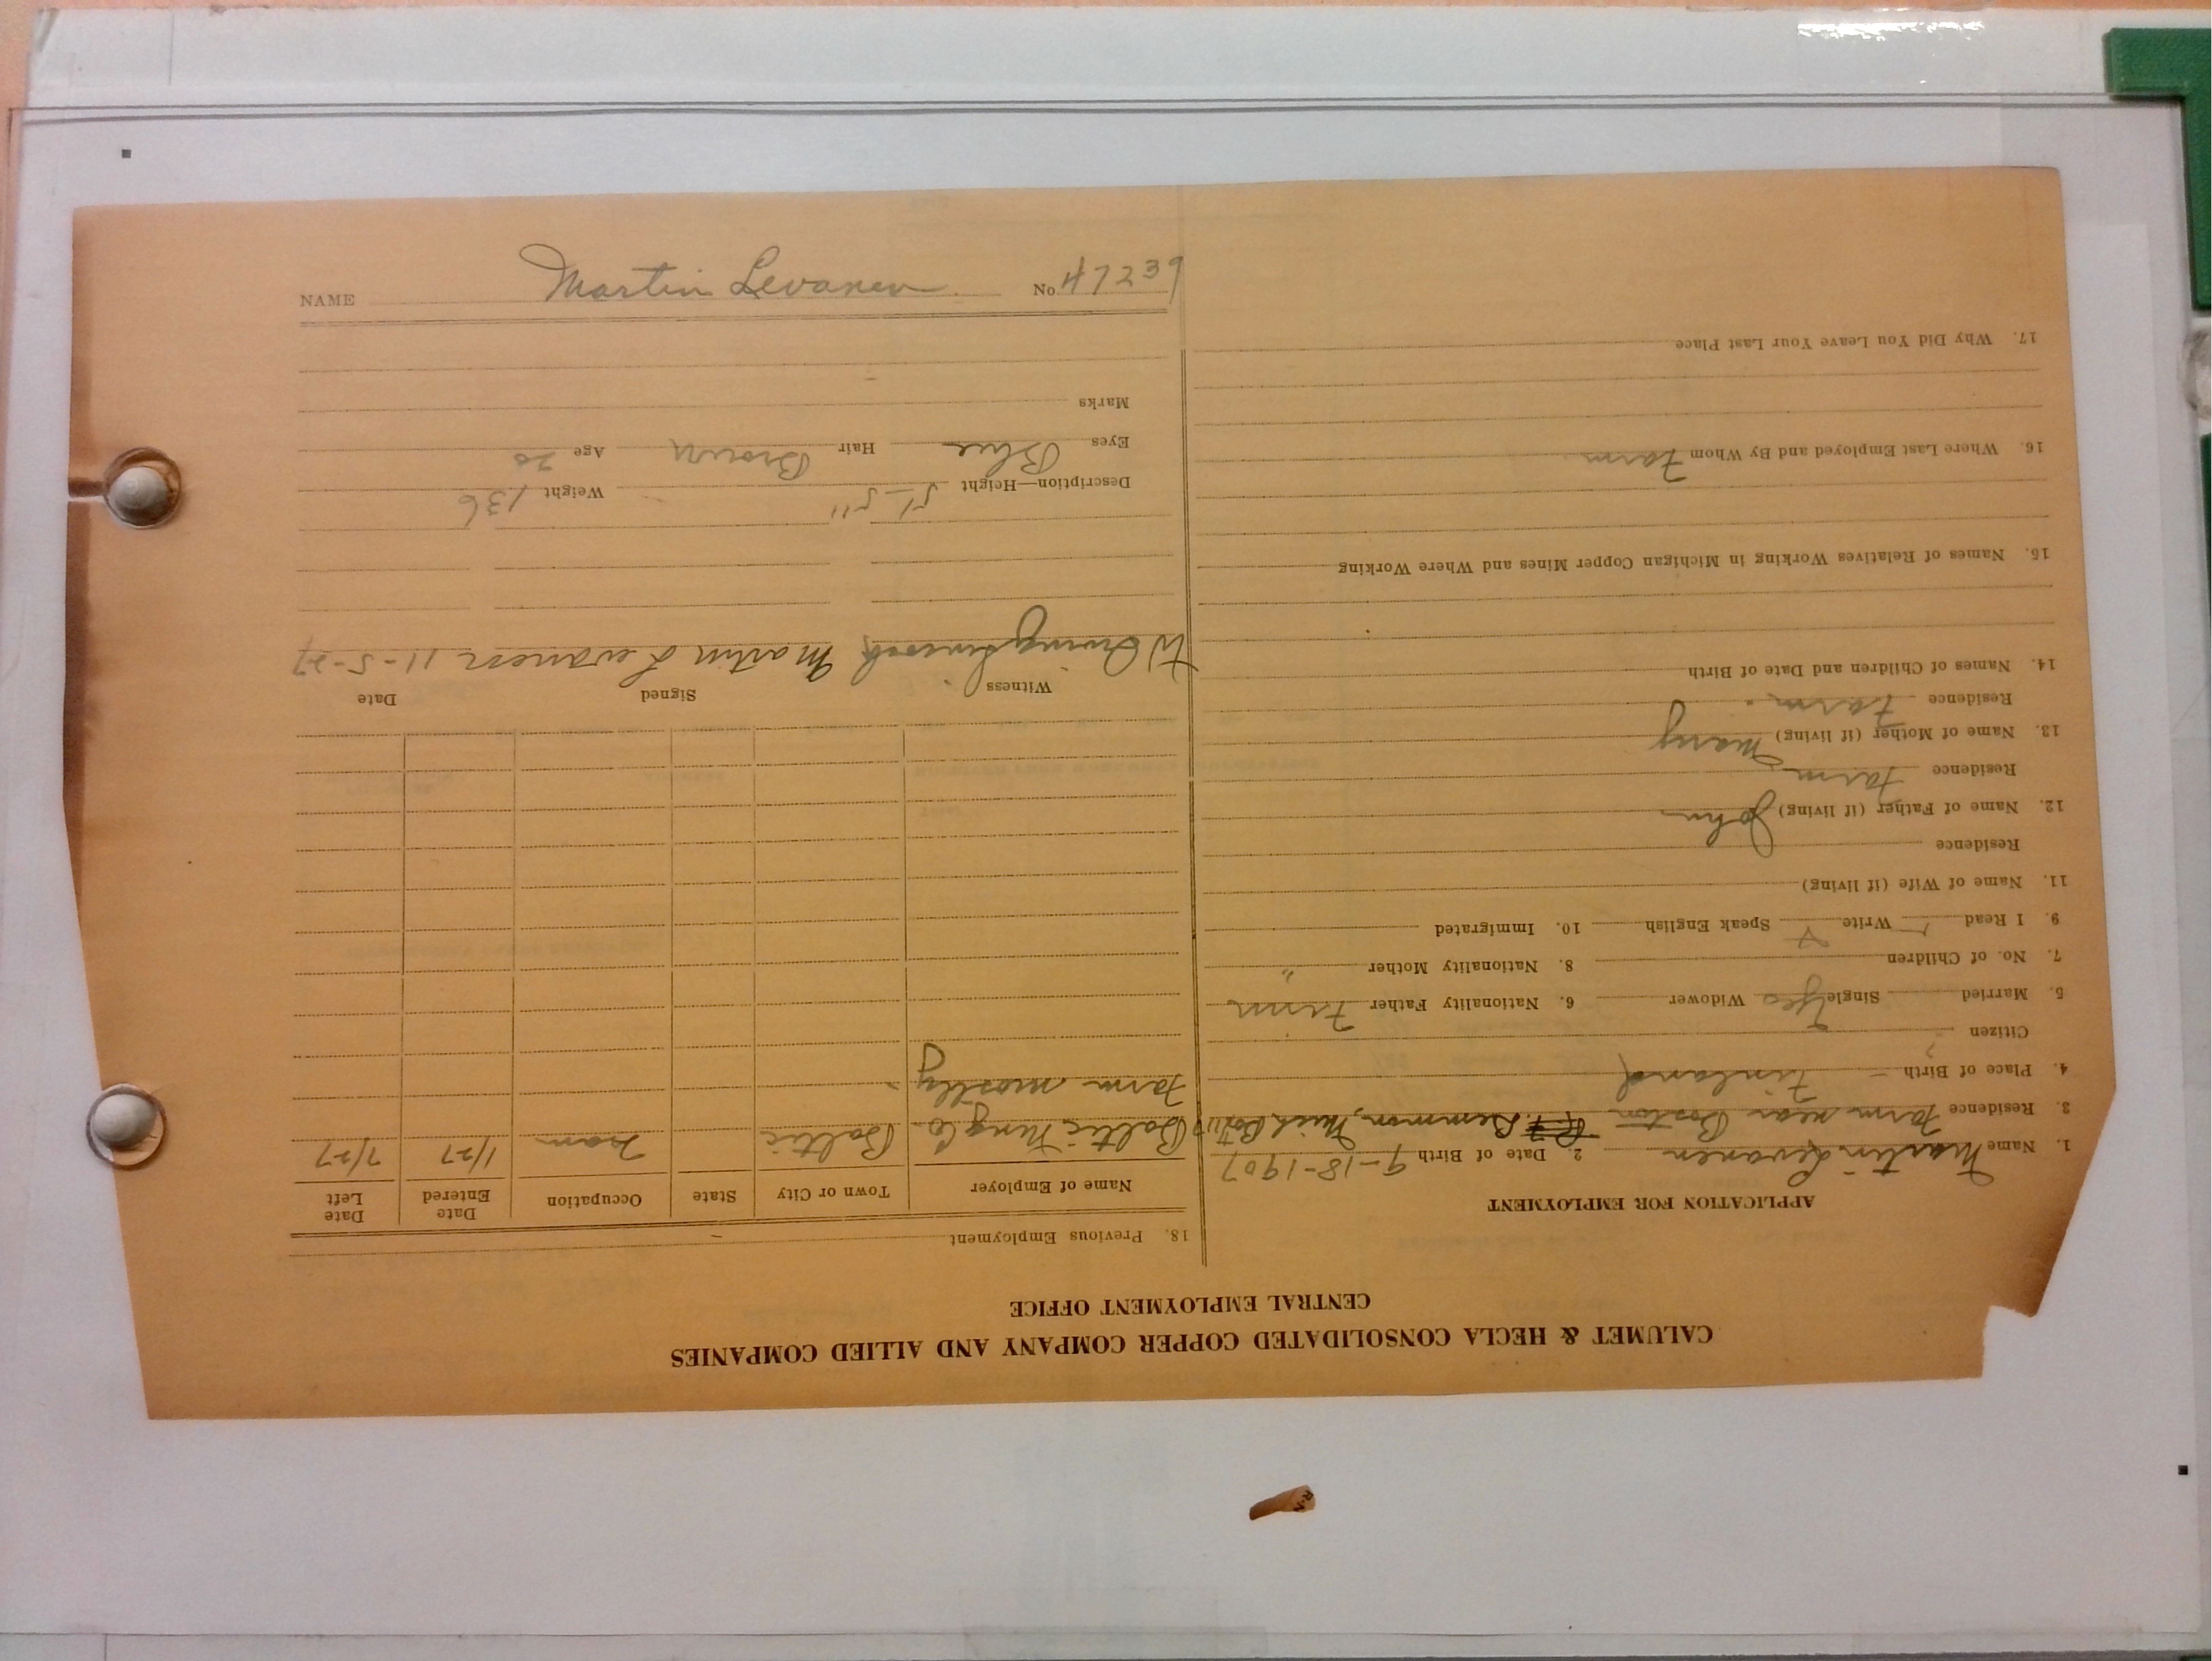 CALUMET & HECLA CONSOLIDATED COPPER COMPANY AND ALLIED COMPANIES
CENTRAL EMPLOYMENT OFFICE
APPLICATION FOR EMPLOYMENT
1. Name Martin Levanen 2. Date of Birth 9-18-1907
3. Residence Farm near Boston
4. Place of Birth Finland
Citizen
5. Married Single Yes Widower 6. Nationality Father Finn
7. No. of Children 8. Nationality Mother "
9. I Read Write Speak English 10. Immigrated
11. Name of Wife (if living)
Residence
12. Name of Father (if living) John
Residence Farm
13. Name of Mother (if living) Mary
Residence Farm
14. Names of Children and Date of Birth
15. Names of Relatives Working in Michigan Copper Mines and Where Working
16. Where Last Employed and By Whom Farm
17. Why Did You Leave Your Last Place
18. Previous Employment
Name of Employer Town or City State Occupation Date Entered Date Left
Baltic Mng Co Baltic Tram 1/27 7/27
Farm mostly
Witness Signed Date
Martin Levanen 11-5-27
Description—Height 5'-5" Weight 136
Eyes Blue Hair Brown Age 20
Marks
NAME Martin Levanen No 47239